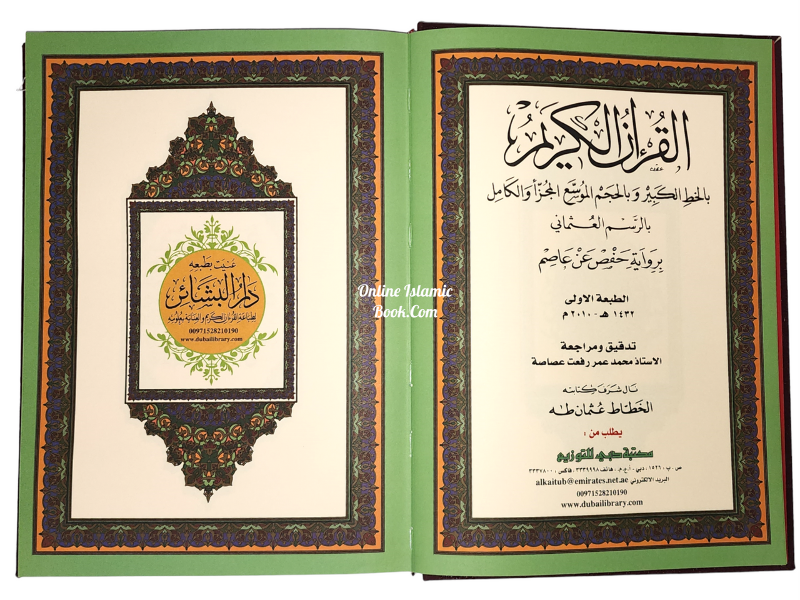 القرآن الكريم
بالخط الكبير وبالحجم الموسع المجزأ والكامل
بالرسم العثماني
برواية حفص عن عاصم
الطبعة الأولى
١٤٣٢ هـ - ٢٠١٠ م
تدقيق ومراجعة
الاستاذ محمد عمر رفعت عصاصة
نال شرف كتابته
الخطاط عثمان طه
يطلب من :
مكتبة دبي للتوزيع
ص . ب . ١٥٢٦١ دبي - أ . ع . م . هاتف ٣٣٣٩٩٩٨ فاكس . ٣٣٣٧٨٠٠
البريد الالكتروني alkaitub@emirates.net.ae
00971528210190
www.dubailibrary.com
عنيت بطبعه
دار البشائر
لطباعة القرآن الكريم والعناية بعلومه
00971528210190
www.dubailibrary.com
Online Islamic
Book.Com